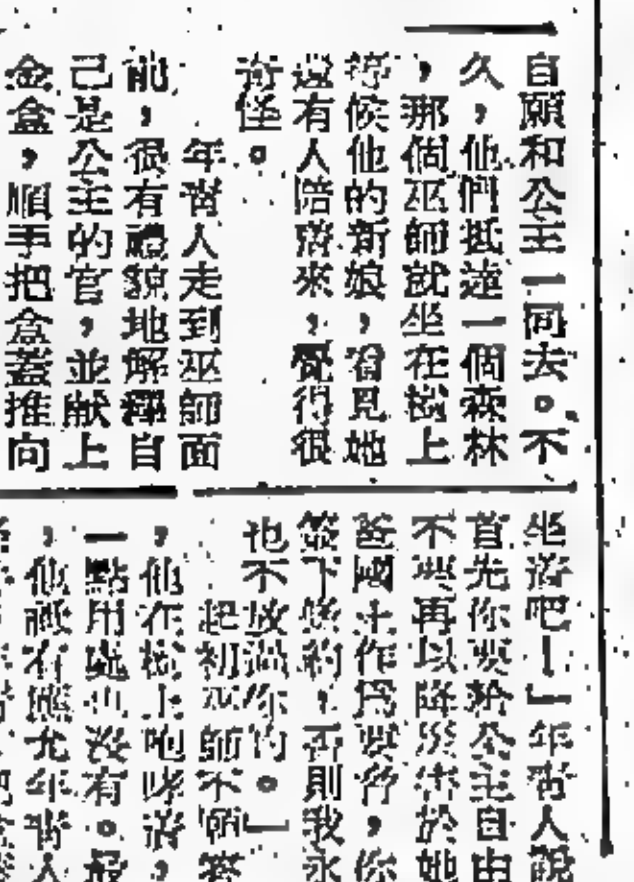 自願和公主一同去。不
久，他們抵達一個森林
，那個巫師就坐在樹上
等候他的新娘，看見她
還有人陪着來，覺得很
奇怪。
年靑人走到巫師面
前，很有禮貌地解釋自
己是公主的官，並献上
金盒，順手把盒蓋推向
坐着吧！」年靑人說
首先你要給公主自由
不要再以降災害於她
爸國土作爲要脅，你
簽下條約，否則我永
也不放過你的。」
起初巫師不願答
，他在樹上咆哮着，
一點用處也沒有。最
，他祇有應允年靑人